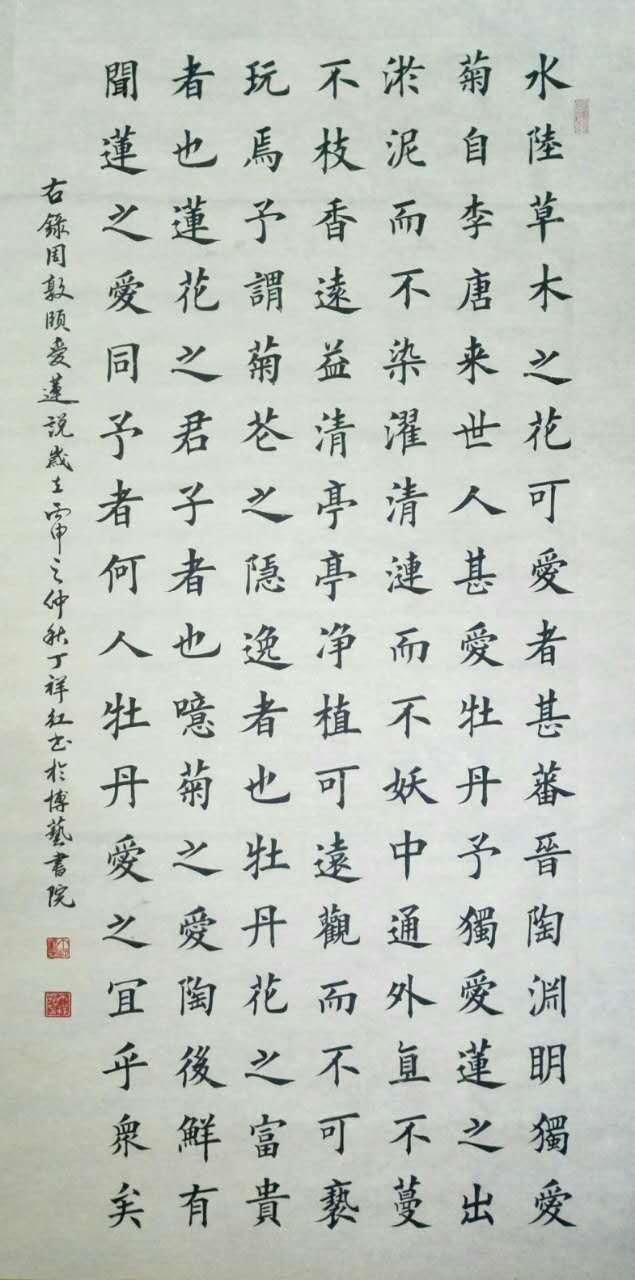 水陸草木之花可愛者甚蕃晉陶淵明獨愛
菊自李唐来世人甚愛牡丹予獨愛蓮之出
淤泥而不染濯清漣而不妖中通外直不蔓
不枝香遠益清亭亭净植可遠觀而不可褻
玩焉予謂菊花之隱逸者也牡丹花之富貴
者也蓮花之君子者也噫菊之愛陶後鮮有
聞蓮之愛同予者何人牡丹愛之宜乎衆矣
右錄周敦頤愛蓮說歲在丙申之仲秋丁祥红书於博藝書院